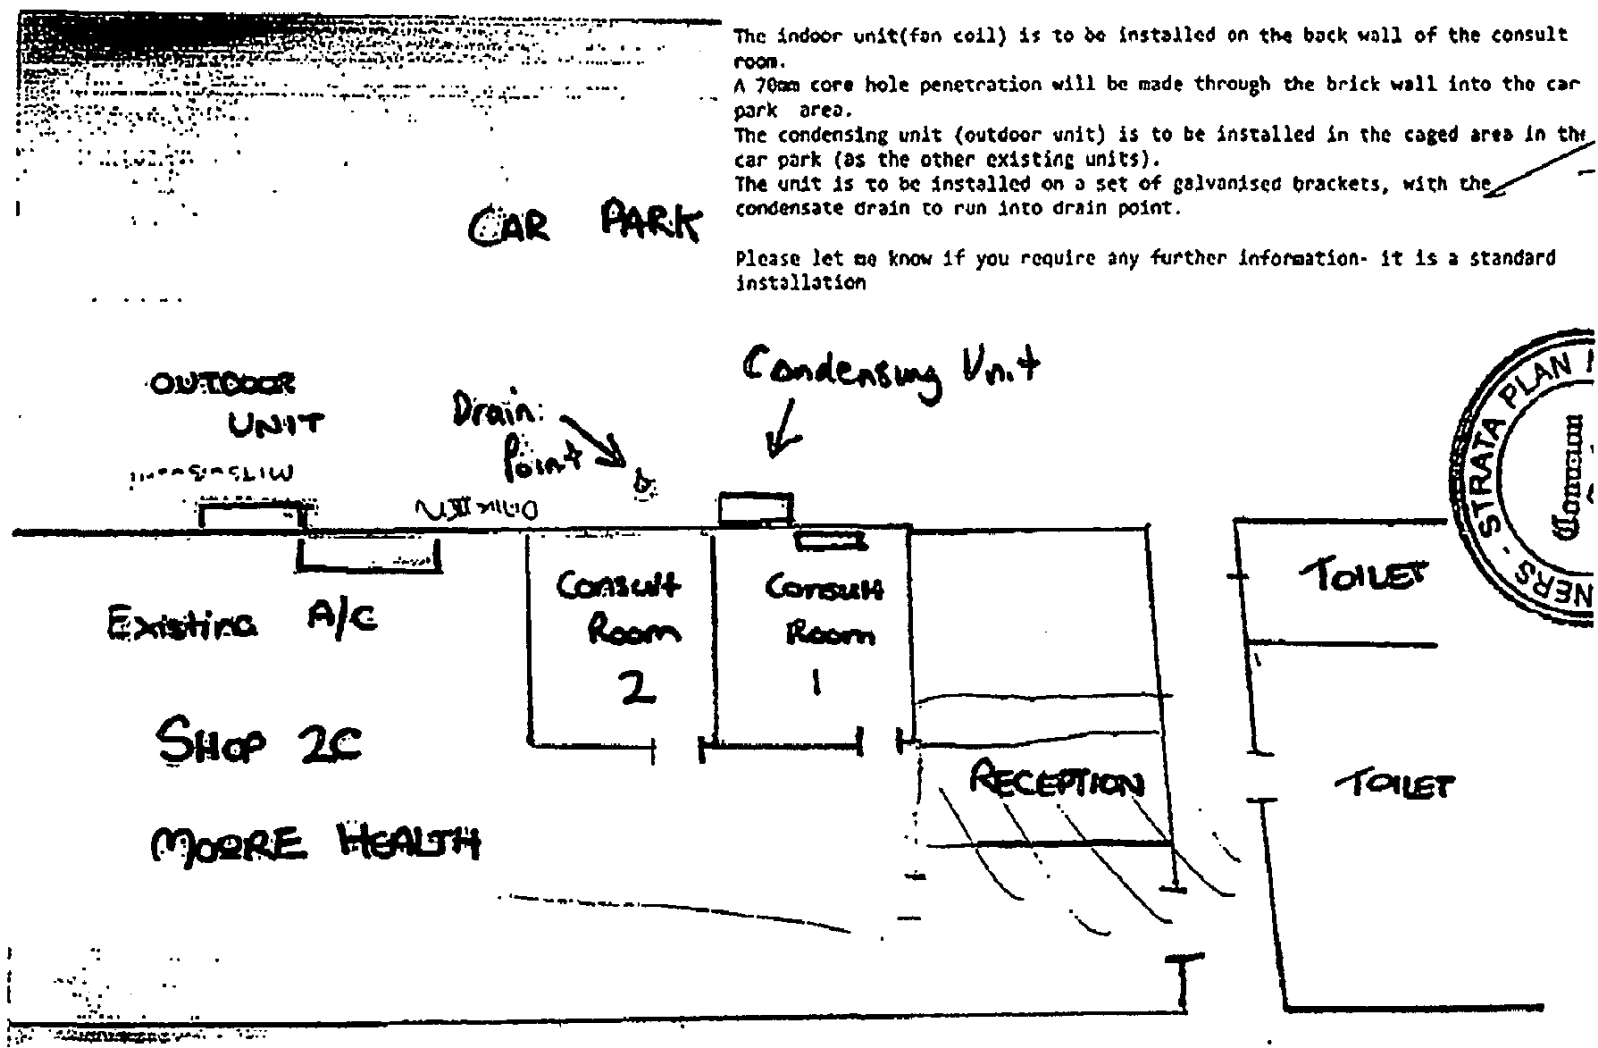 The indoor unit(fan coil) is to be installed on the back wall of the consult
room.
A 70mm core hole penetration will be made through the brick wall into the car
park area.
The condensing unit (outdoor unit) is to be installed in the caged area in the
car park (as the other existing units).
The unit is to be installed on a set of galvanised brackets, with the
condensate drain to run into drain point.
Please let me know if you require any further information- it is a standard
installation
CAR PARK
Condensing Unit
OUTDOOR
UNIT
Drain
Point
STRATA PLAN
Common
NERS
Existing A/C
Consult
Room
2
Consult
Room
1
TOILET
SHOP 2C
RECEPTION
TOILET
MOORE HEALTH